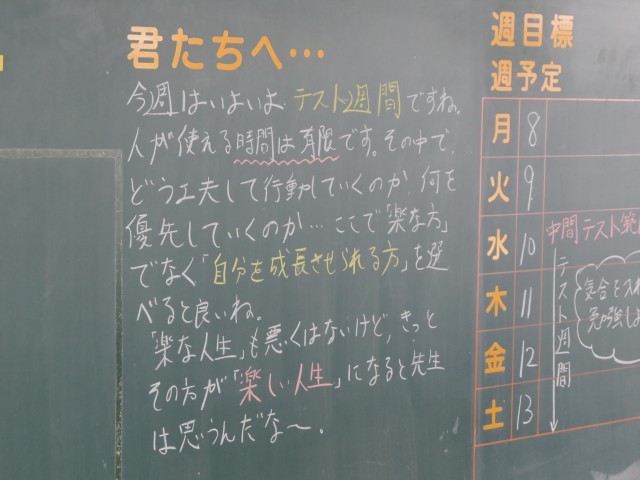 君たちへ…
今週はいよいよ テスト週間ですね。
人が使える時間は有限です。その中で、
どう工夫して行動していくのか、何を
優先していくのか… ここで「楽な方」
でなく「自分を成長させられる方」を選
べると良いね。
「楽な人生」も悪くはないけど、きっと
その方が「楽しい人生」になると先生
は思うんだな〜。
週目標
週予定
月 8
火 9
水 10 中間テスト範
木 11
金 12
土 13
テスト週間
気合を入れ
勉強しよ